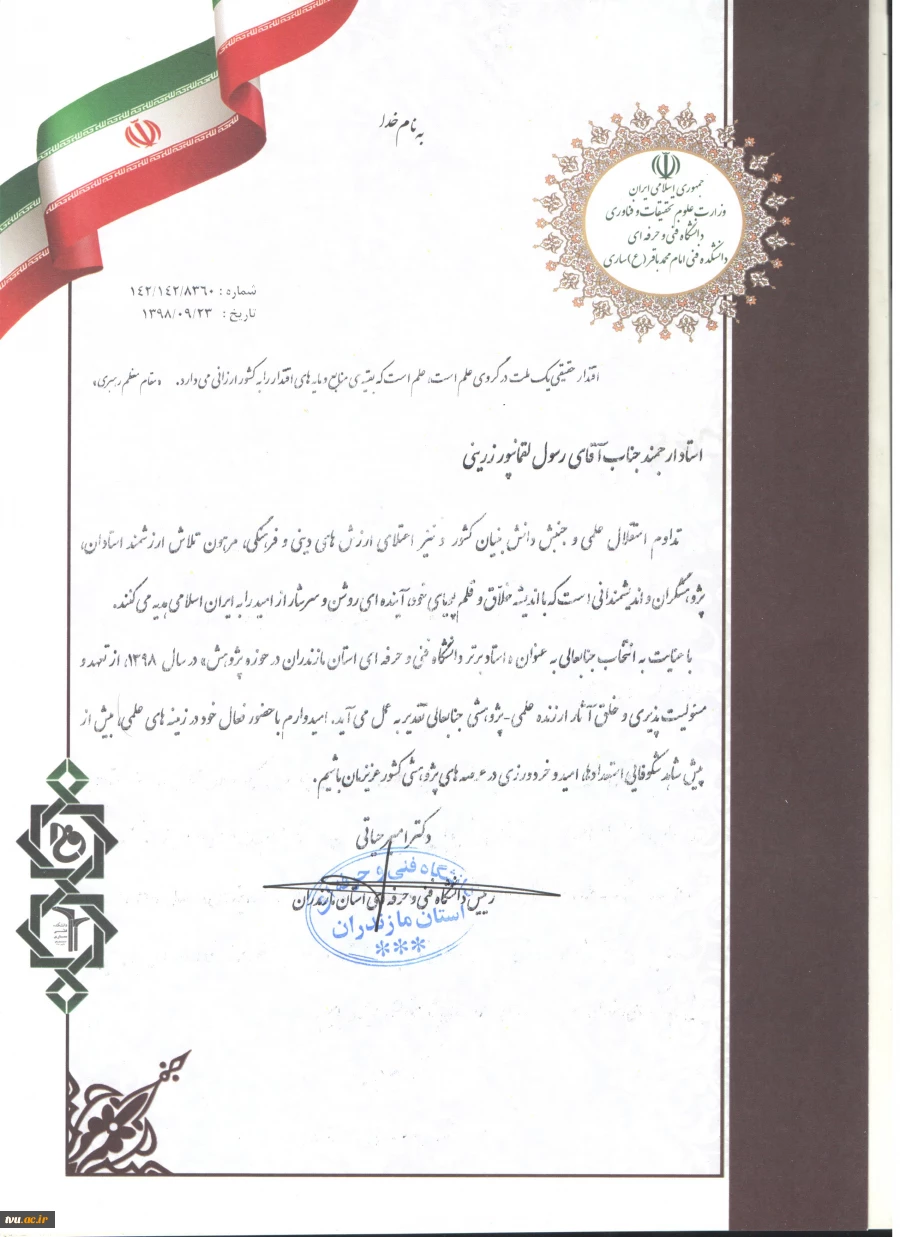 به نام خدا
جمهوری اسلامی ایران
وزارت علوم تحقیقات و فناوری
دانشگاه فنی و حرفه ای
دانشکده فنی امام محمد باقر (ع) ساری
شماره : ۱۴۲/۱۴۲/۸۳۶۰
تاریخ : ۱۳۹۸/۰۹/۲۳
اقتدار حقیقی یک ملت در گروی علم است، علم است که بقیه ی منابع و مایه های اقتدار را به کشور ارزانی می دارد. «مقام معظم رهبری»
استاد ارجمند جناب آقای رسول لقمانپور زرینی
تداوم استقلال علمی و جنبش دانش بنیان کشور و نیز اعتلای ارزش های دینی و فرهنگی، مرهون تلاش ارزشمند استادان،
پژوهشگران و اندیشمندانی است که با اندیشه خلاق و قلم پویای خود، آینده ای روشن و سرشار از امید را به ایران اسلامی هدیه می کنند.
با عنایت به انتخاب جنابعالی به عنوان «استاد برتر دانشگاه فنی و حرفه ای استان مازندران در حوزه پژوهش» در سال ۱۳۹۸، از تعهد و
مسئولیت پذیری و خلق آثار ارزنده علمی-پژوهشی جنابعالی تقدیر به عمل می آید. امیدوارم با حضور فعال خود در زمینه های علمی، بیش از
پیش شاهد شکوفایی استعدادها، امید و خردورزی در عرصه های پژوهشی کشور عزیزمان باشیم.
دکتر امیر حیاتی
رییس دانشگاه فنی و حرفه ای استان مازندران
دانشگاه فنی و حرفه ای
استان مازندران
***
tvu.ac.ir